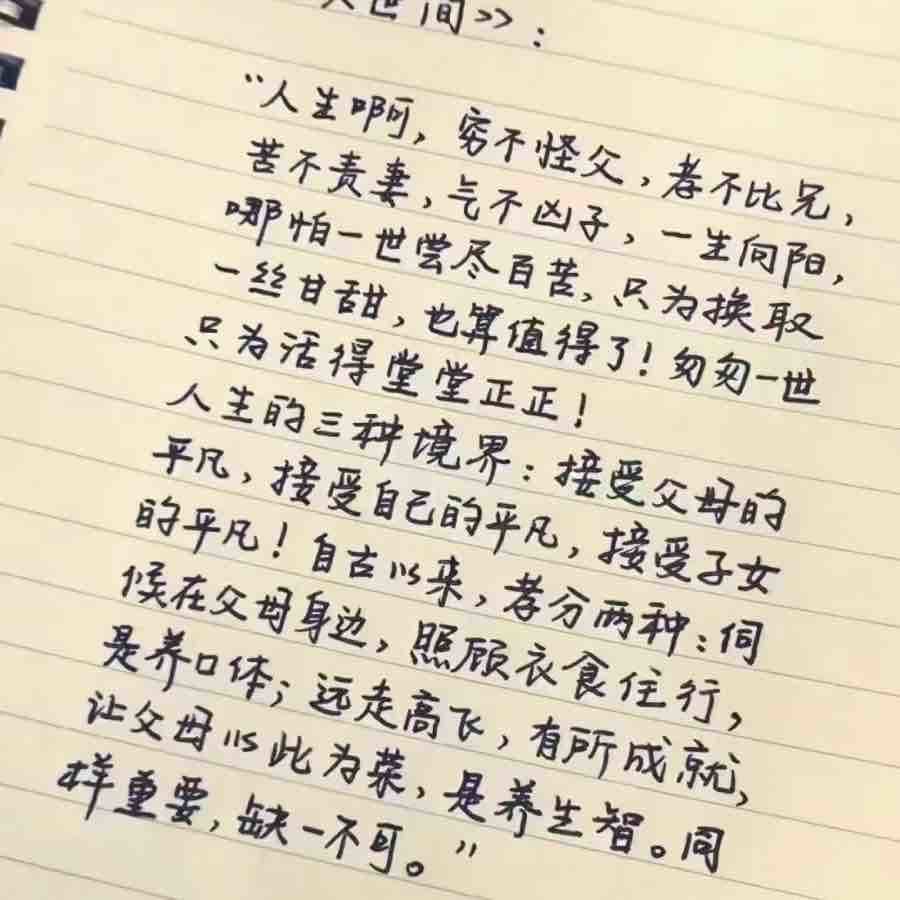 人世间》：
“人生啊，穷不怪父，孝不比兄，
苦不责妻，气不凶子，一生向阳，
哪怕一世尝尽百苦，只为换取
一丝甘甜，也算值得了！匆匆一世
只为活得堂堂正正！
人生的三种境界：接受父母的
平凡，接受自己的平凡，接受子女
的平凡！自古以来，孝分两种：伺
候在父母身边，照顾衣食住行，
是养口体；远走高飞，有所成就，
让父母以此为荣，是养生智。同
样重要，缺一不可。”